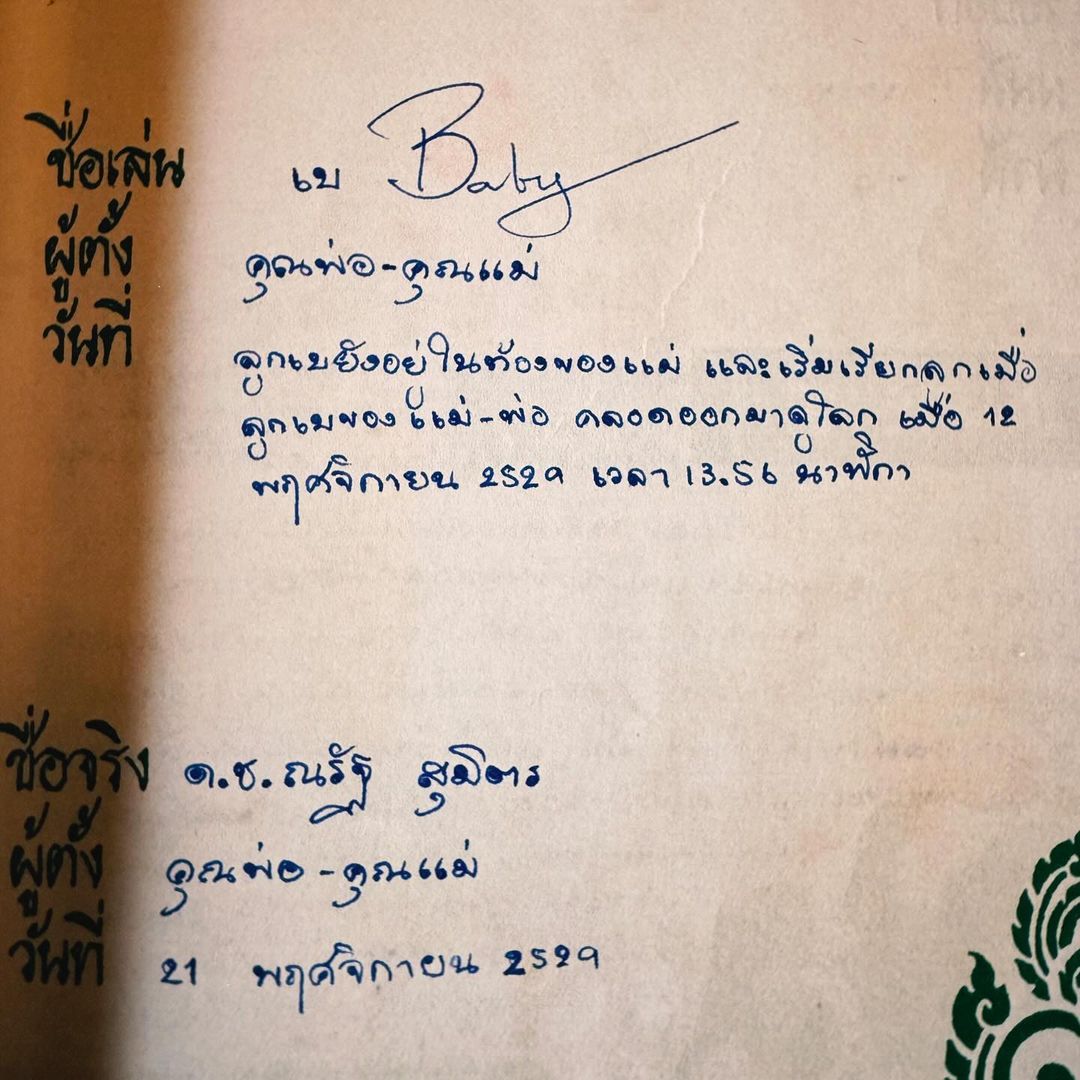 ชื่อเล่น เบ Baby
ผู้ตั้ง คุณพ่อ-คุณแม่
วันที่ ลูกเบยังอยู่ในท้องของแม่ และเริ่มเรียกลูกเมื่อ
ลูกเบของแม่-พ่อ คลอดออกมาดูโลก เมื่อ 12
พฤศจิกายน 2529 เวลา 13.56 นาฬิกา
ชื่อจริง ด.ช. ณรัฐ สุมิตร
ผู้ตั้ง คุณพ่อ-คุณแม่
วันที่ 21 พฤศจิกายน 2529